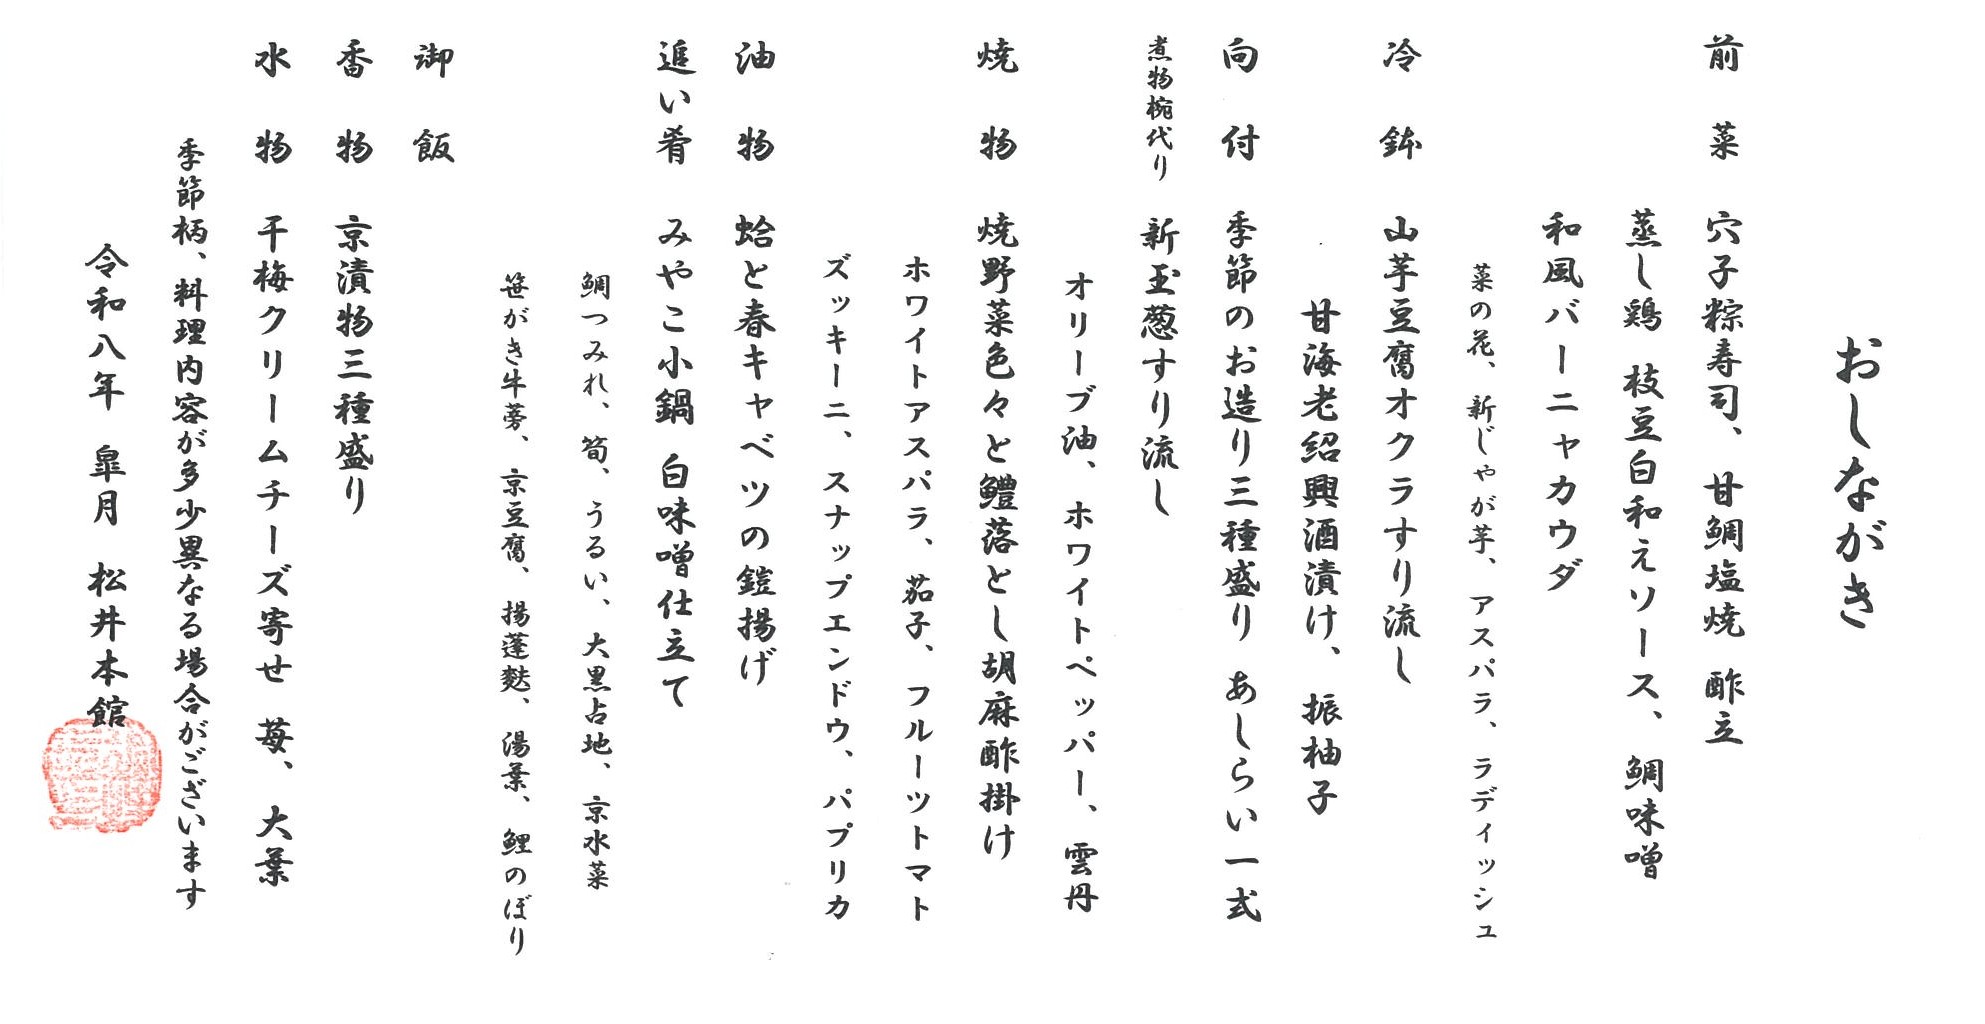 おしながき
前菜 穴子粽寿司、甘鯛塩焼 酢立
蒸し鶏 枝豆白和えソース、鯛味噌
和風バーニャカウダ
菜の花、新じゃが芋、アスパラ、ラディッシュ
冷鉢 山芋豆腐オクラすり流し
甘海老紹興酒漬け、振柚子
向付 季節のお造り三種盛り あしらい一式
煮物椀代り 新玉葱すり流し
オリーブ油、ホワイトペッパー、雲丹
焼物 焼野菜色々と鱧落とし胡麻酢掛け
ホワイトアスパラ、茄子、フルーツトマト
ズッキーニ、スナップエンドウ、パプリカ
油物 蛤と春キャベツの鎧揚げ
追い肴 みやこ小鍋 白味噌仕立て
鯛つみれ、筍、うるい、大黒占地、京水菜
笹がき牛蒡、京豆腐、揚蓬麩、湯葉、鯉のぼり
御飯
香物 京漬物三種盛り
水物 干梅クリームチーズ寄せ 苺、大葉
季節柄、料理内容が多少異なる場合がございます
令和八年 皐月 松井本館